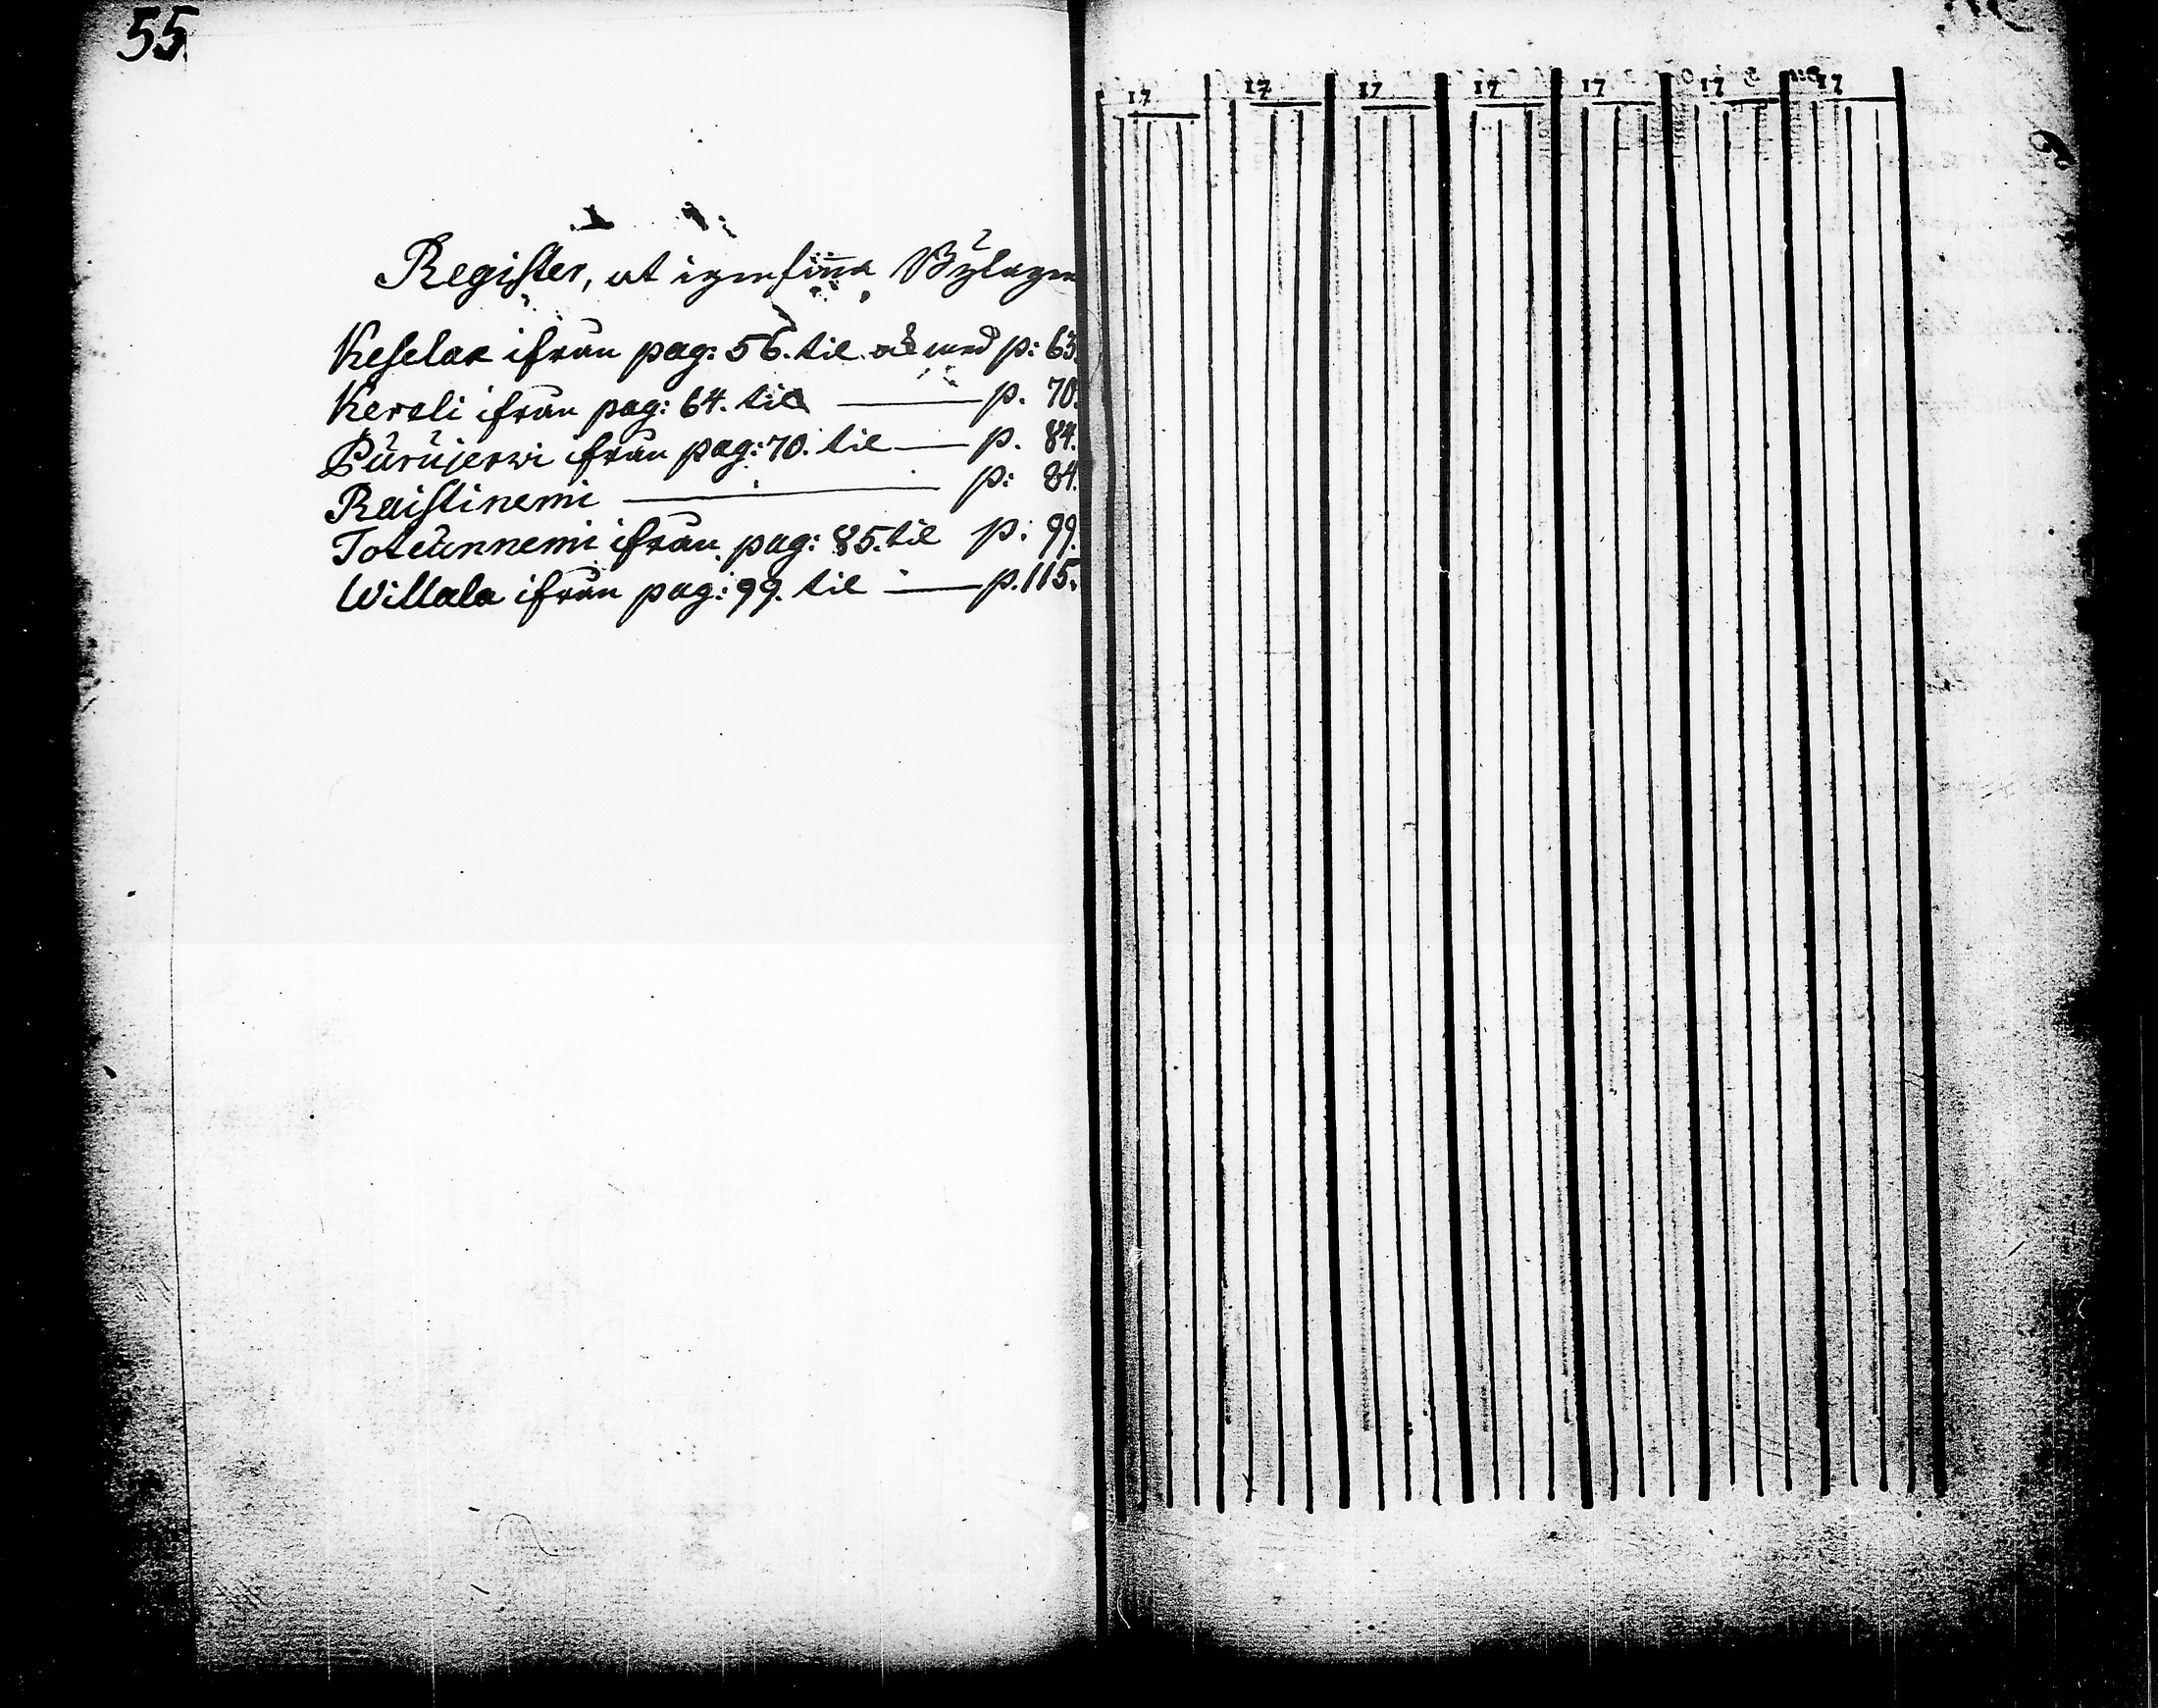 55.
Register, at igenfinna Bylagen
Keselax ifrån pag: 56. til och med p: 63.
Kereli ifrån pag: 64. til — p. 70.
Purujerwi ifrån pag: 70. til — p. 84.
Raistinemi — p: 84.
Totkunnemi ifrån pag: 85. til p: 99.
Willala ifrån pag: 99. til — p. 115.
17 17 17 17 17 17 17